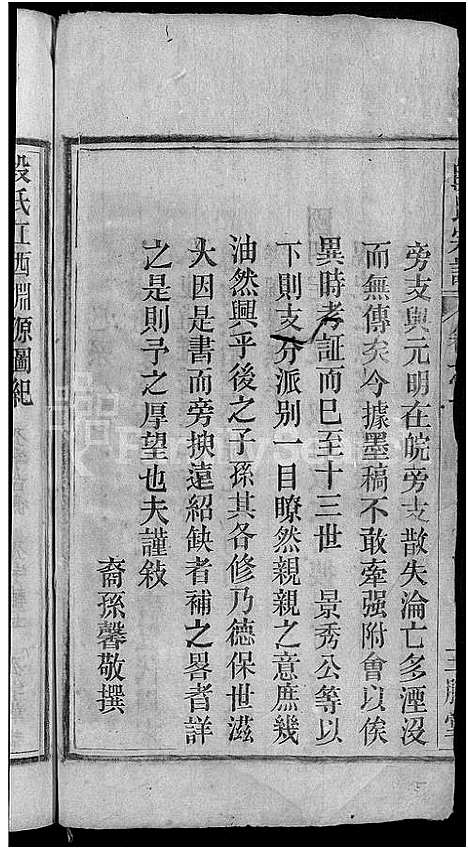 旁支與元明在皖旁支散失淪亡多湮沒
而無傳矣今據墨稿不敢牽强附會以俟
異時考証而已至十三世 景秀公等以
下則支分派别一目瞭然親親之意庶幾
油然興乎後之子孫其各修乃德保世滋
大因是書而旁搜遠紹缺者補之畧者詳
之是則予之厚望也夫謹敍
裔孫馨敬撰
段氏江西淵源圖紀
FamilySearch